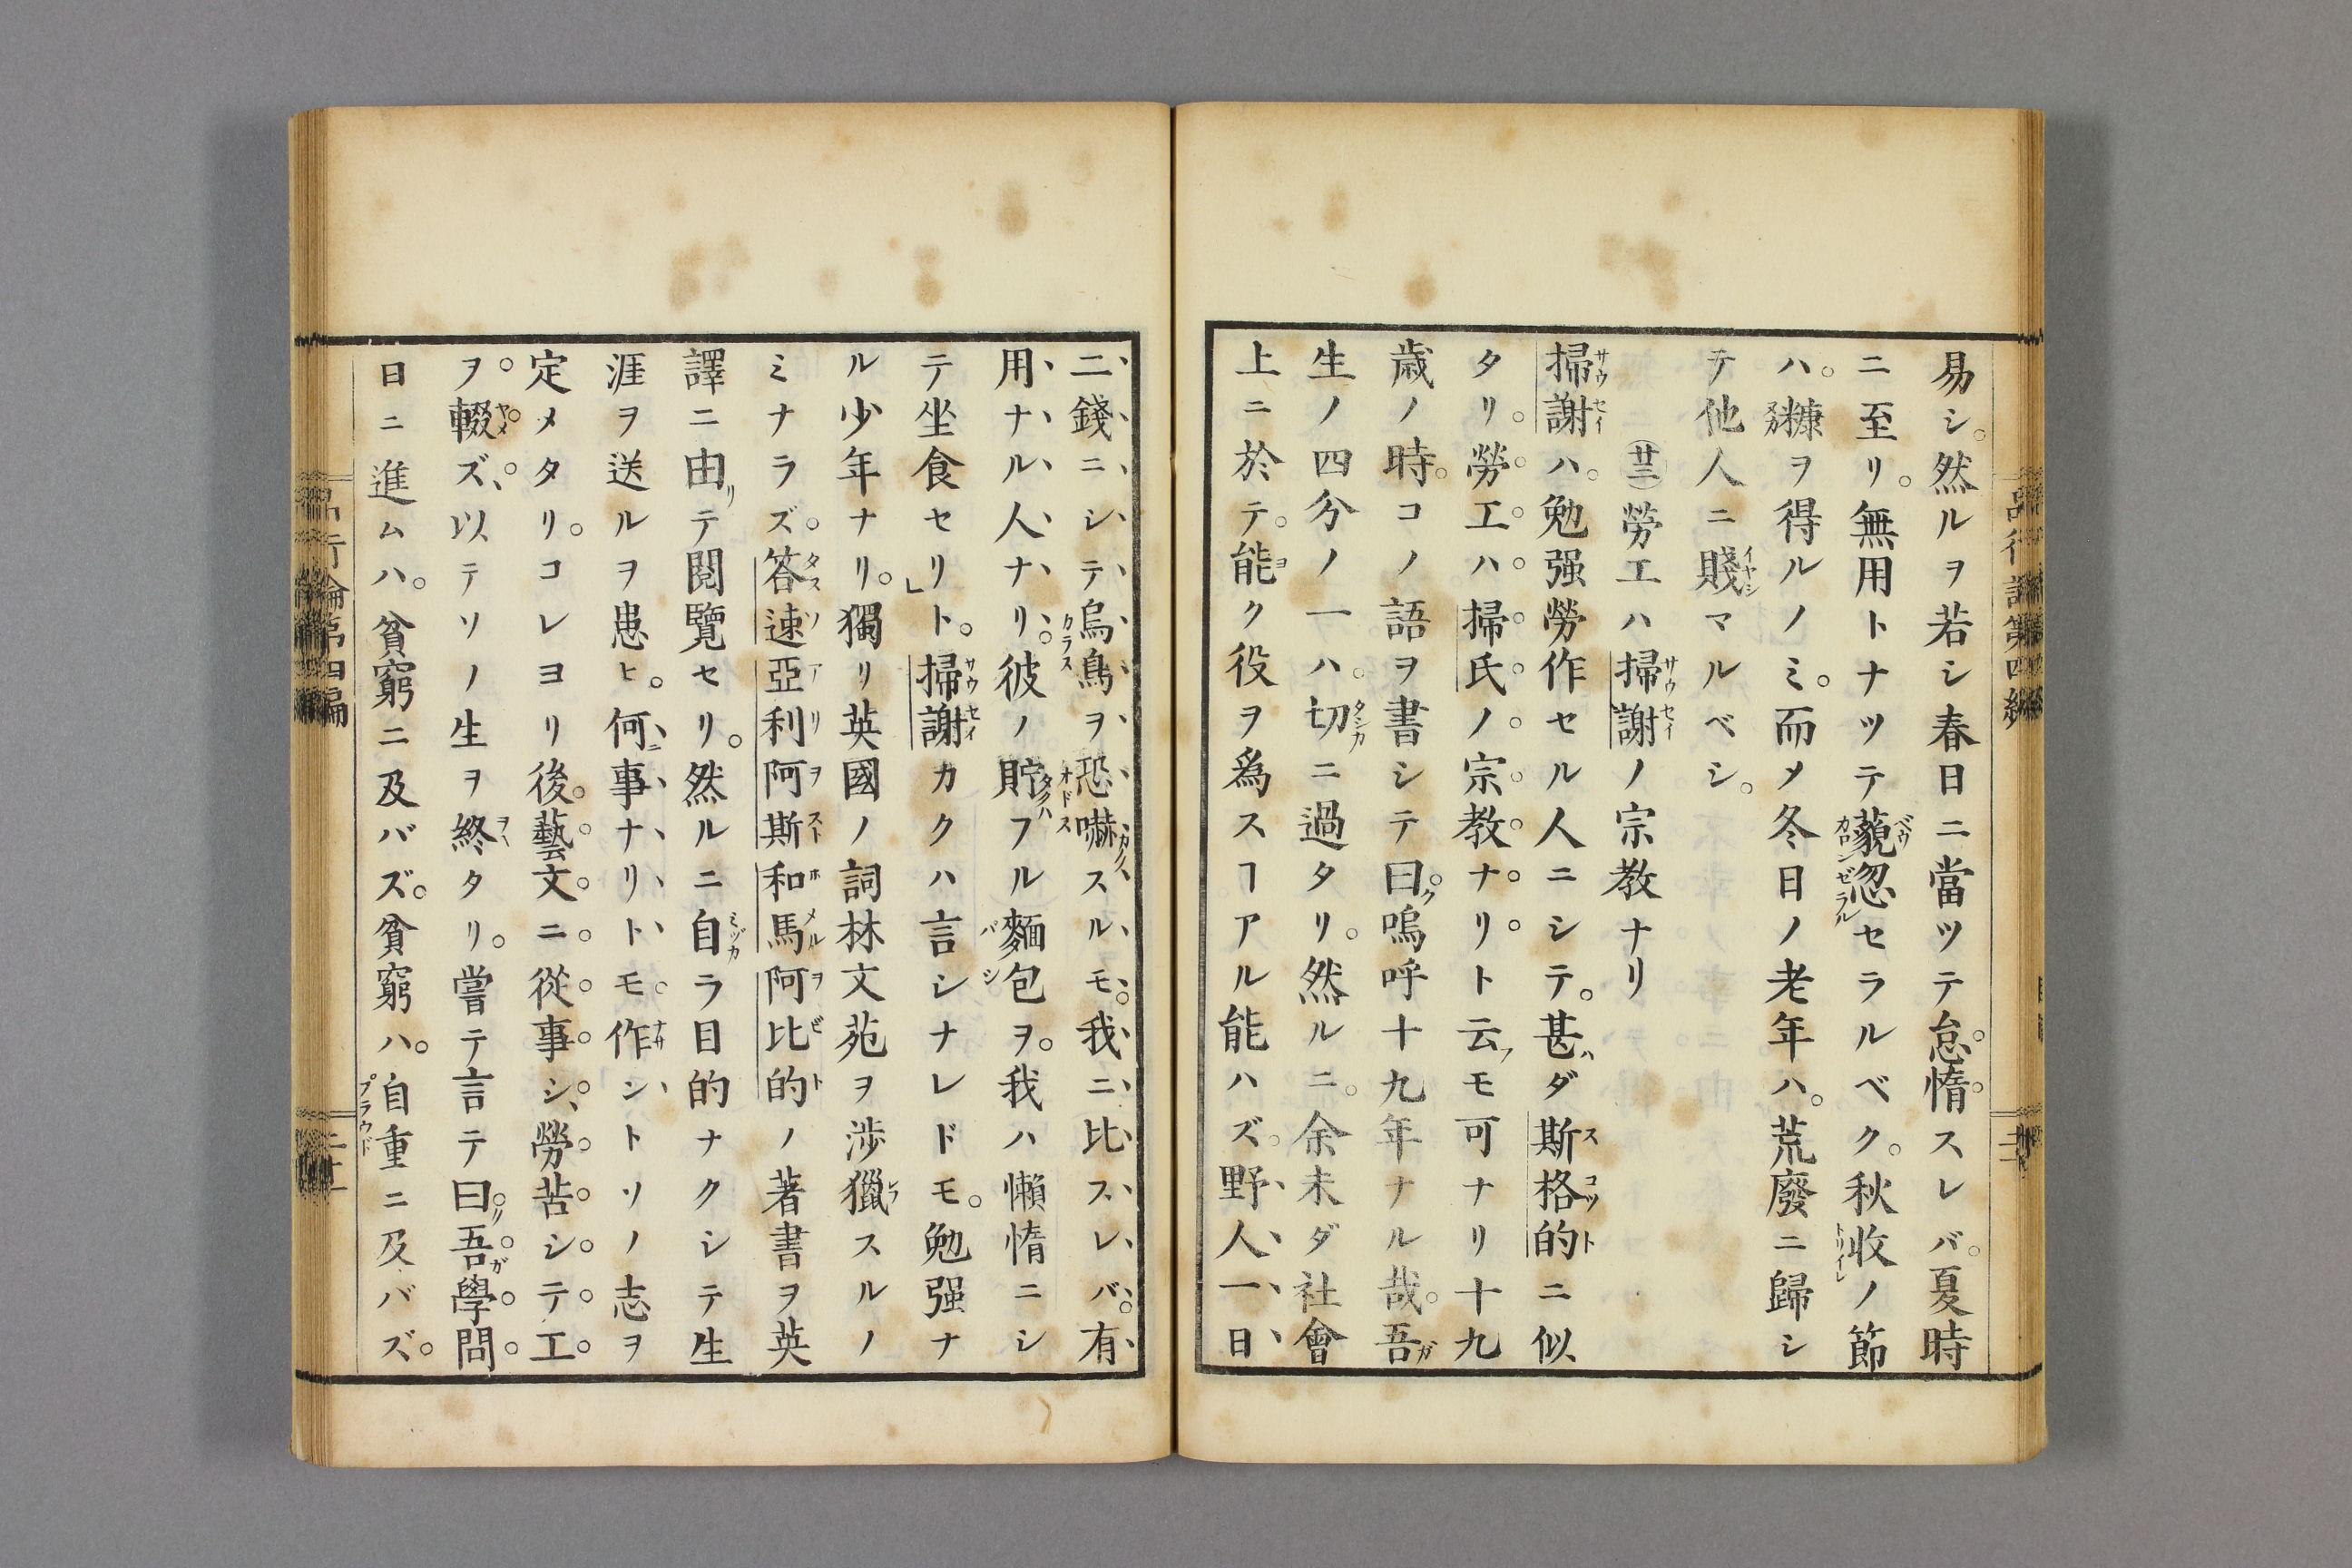 易シ。然ルヲ若シ春日ニ當ツテ怠惰スレバ。夏時
ニ至リ。無用トナツテ藐忽セラルベク。秋收ノ節
ハ。糠ヲ得ルノミ。而メ冬日ノ老年ハ。荒廢ニ歸シ
テ他人ニ賤マルベシ。
㊂勞工ハ掃謝ノ宗教ナリ
掃謝ハ。勉强勞作セル人ニシテ。甚ダ斯格的ニ似
タリ。勞工ハ掃氏ノ宗教ナリト云フモ可ナリ十九
歳ノ時。コノ語ヲ書シテ曰ク。嗚呼十九年ナル哉。吾ガ
生ノ四分ノ一ハ。切ニ過タリ。然ルニ。余未ダ社會
上ニ於テ。能ク役ヲ爲スヿアル能ハズ。野人一日
二錢ニシテ烏鳥ヲ恐嚇スルモ。我ニ比スレバ。有
用ナル人ナリ。彼ノ貯フル麵包ヲ。我ハ懶惰ニシ
テ坐食セリ」ト。掃謝カクハ言シナレドモ。勉强ナ
ル少年ナリ。獨リ英國ノ詞林文苑ヲ渉獵スルノ
ミナラズ。答速亞利阿斯和馬阿比的ノ著書ヲ英
譯ニ由リテ閲覽セリ。然ルニ自ラ目的ナクシテ生
涯ヲ送ルヲ患ヒ。何事ナリトモ。作ントソノ志ヲ
定メタリ。コレヨリ後。藝文ニ從事シ、勞苦シテ工
ヲ輟ズ、以テソノ生ヲ終タリ。嘗テ言テ曰ク。吾ガ學問
日ニ進ムハ。貧窮ニ及バズ。貧窮ハ。自重ニ及バズ。
品行論第四編